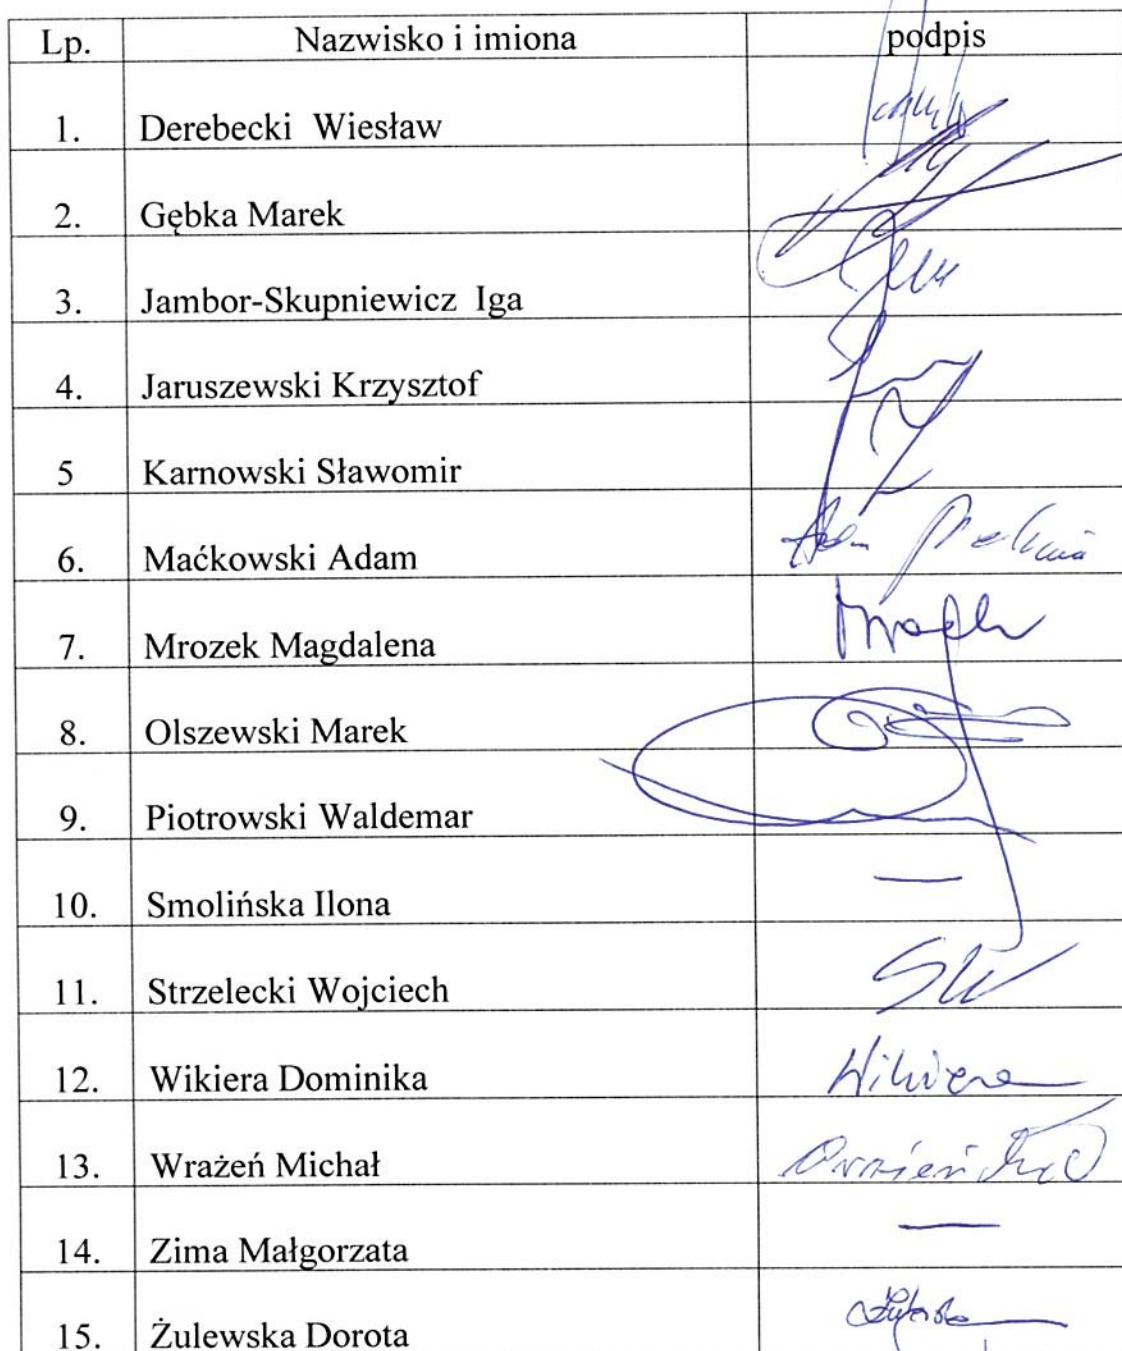 Lp. Nazwisko i imiona podpis
1. Derebecki Wiesław
2. Gębka Marek
3. Jambor-Skupniewicz Iga
4. Jaruszewski Krzysztof
5 Karnowski Sławomir
6. Maćkowski Adam
7. Mrozek Magdalena
8. Olszewski Marek
9. Piotrowski Waldemar
10. Smolińska Ilona —
11. Strzelecki Wojciech SW
12. Wikiera Dominika Wikiera
13. Wrażeń Michał
14. Zima Małgorzata —
15. Żulewska Dorota